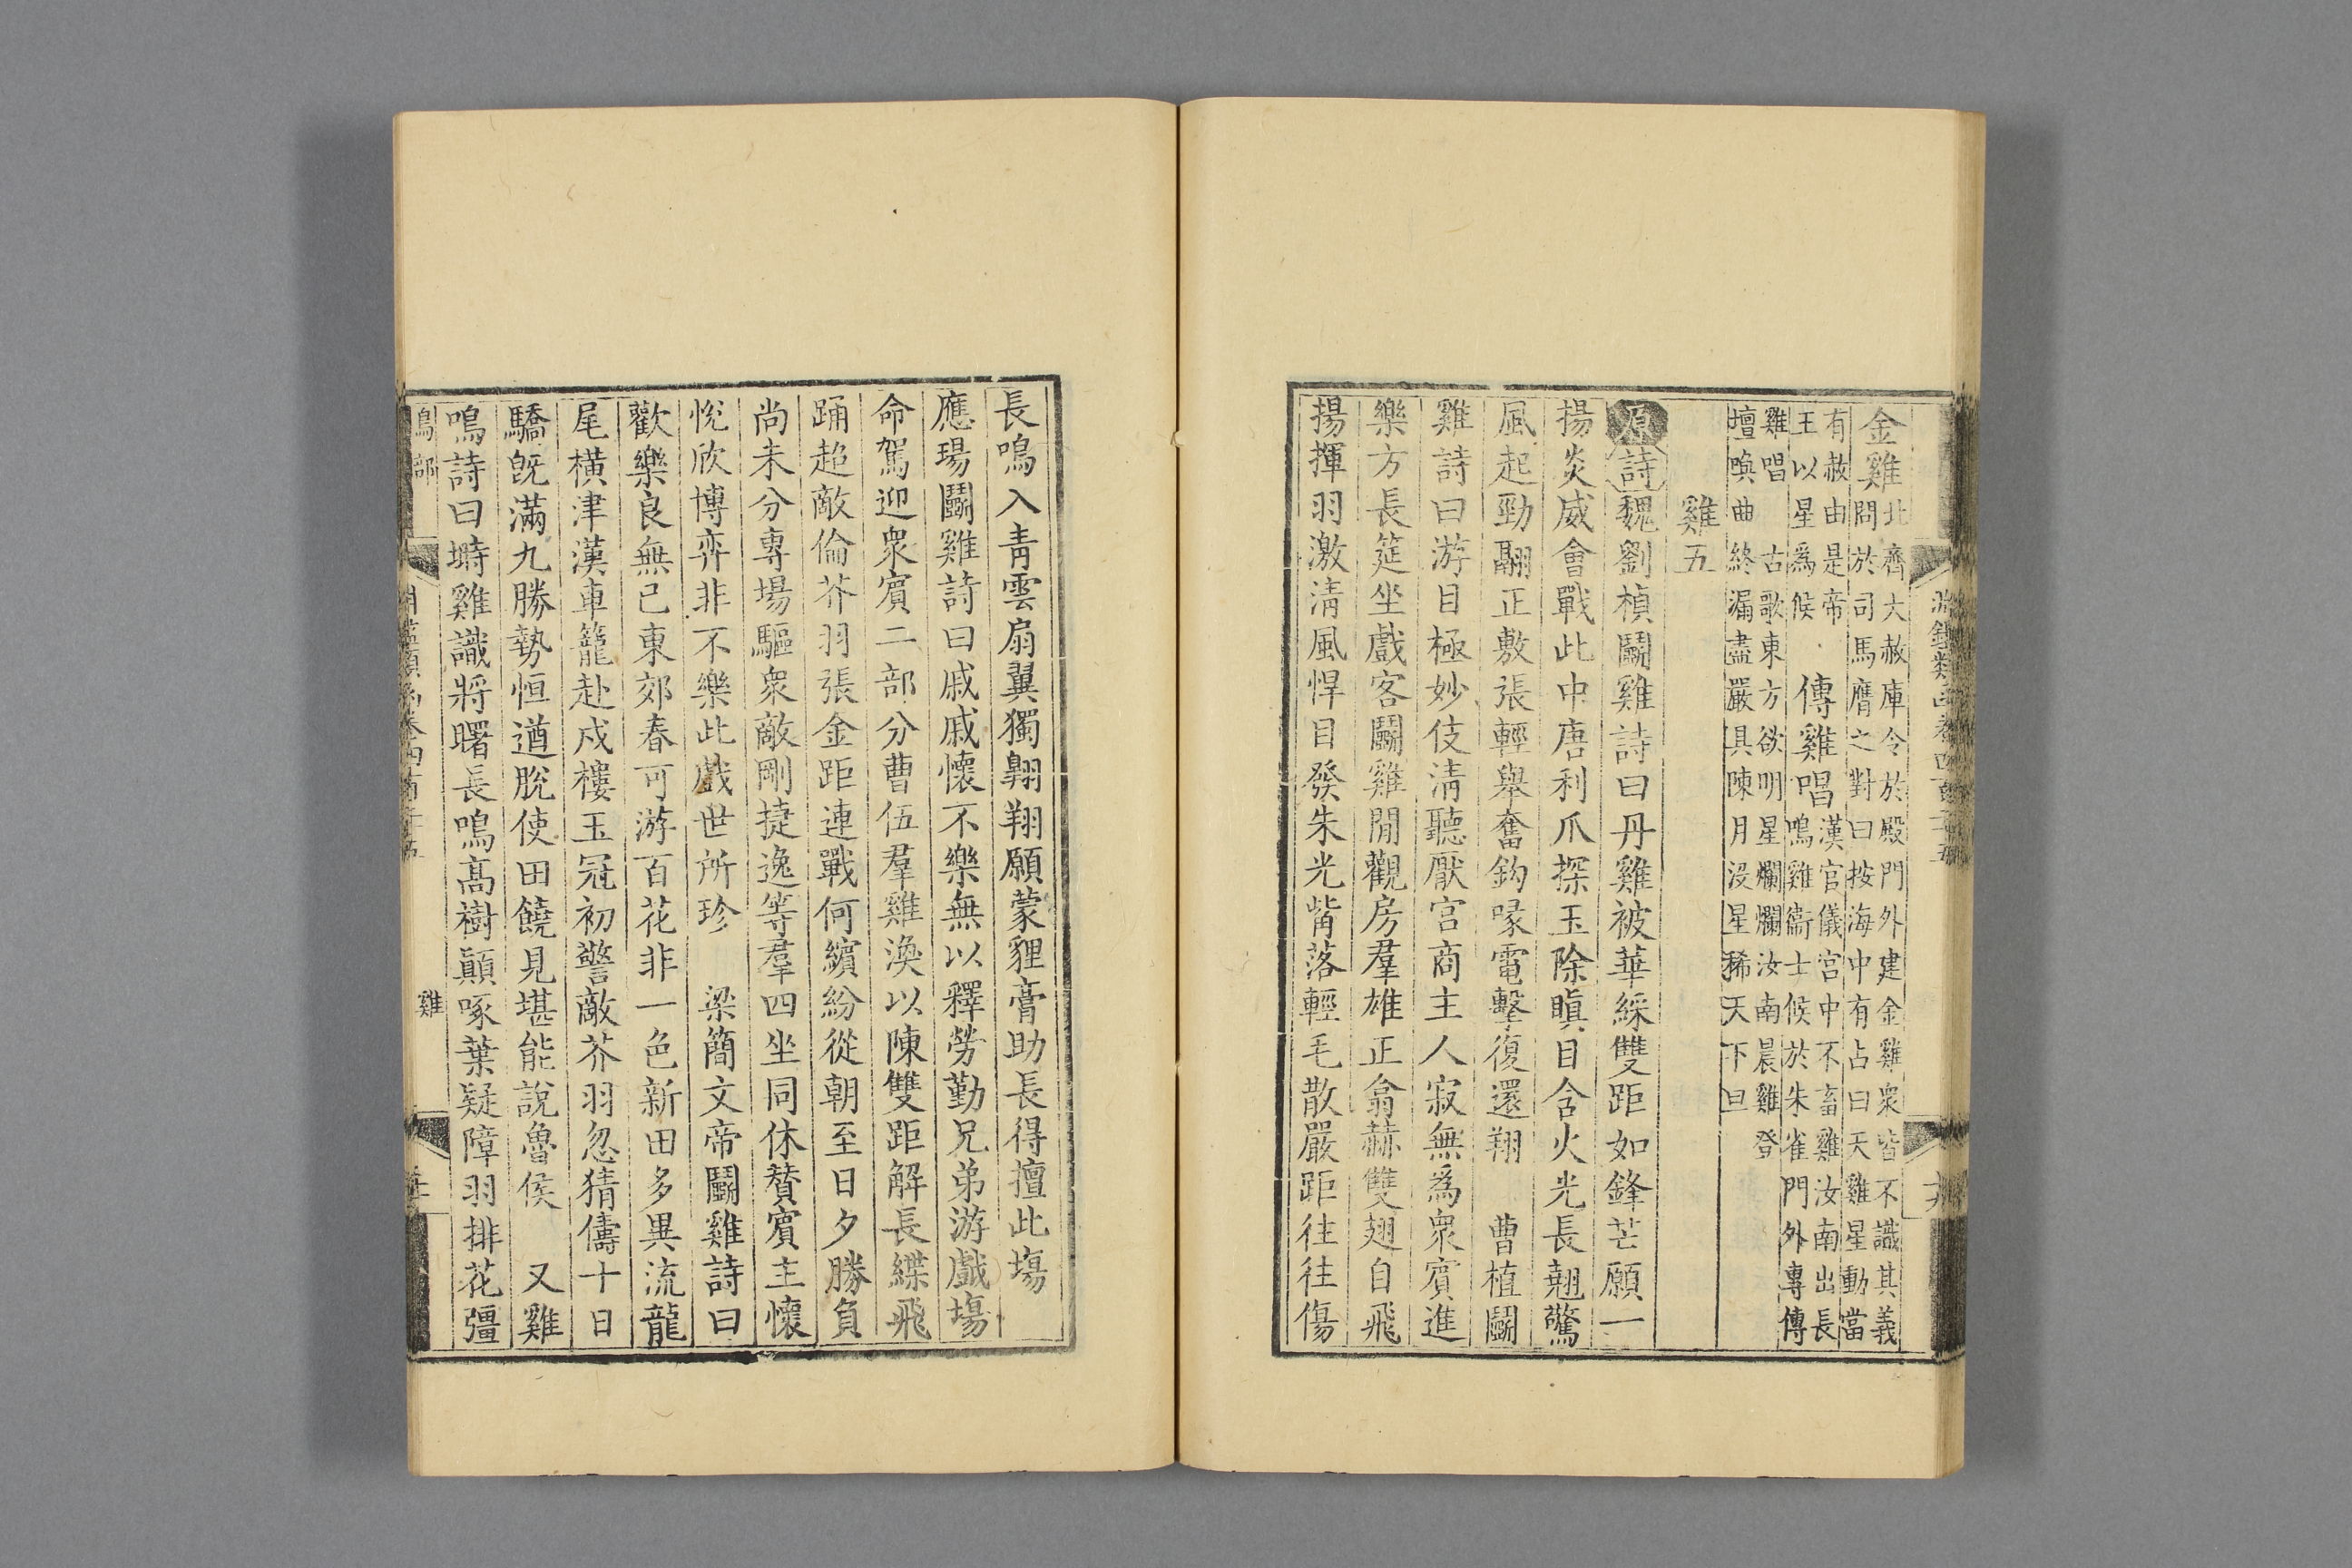 淵鑑類函卷四百二十五　十九
金雞北齊大赦庫令於殿門外建金雞衆皆不識其義
問於司馬膺之對曰按海中有占曰天雞星動當
有赦由是帝
王以星爲候
傳雞唱漢官儀宫中不畜雞汝南出長
鳴雞衞士候於朱雀門外專傳
雞唱　古歌東方欲明星爛爛汝南晨雞登
壇喚曲終漏盡嚴具陳月没星稀天下旦
雞五
原詩魏劉楨鬭雞詩曰丹雞被華綵雙距如鋒芒願一
揚炎威會戰此中唐利爪探玉除瞋目含火光長翹驚
風起勁翮正敷張輕舉奮鈎喙電擊復還翔　曹植鬭
雞詩曰游目極妙伎淸聽厭宫商主人寂無爲衆賓進
樂方長筵坐戲客鬭雞閒觀房羣雄正翕赫雙翅自飛
揚揮羽激淸風悍目發朱光觜落輕毛散嚴距往往傷
長鳴入青雲扇翼獨翱翔願蒙貍膏助長得擅此塲
應瑒鬭雞詩曰戚戚懷不樂無以釋勞勤兄弟游戲塲
命駕迎衆賓二部分曹伍羣雞渙以陳雙距解長緤飛
踊超敵倫芥羽張金距連戰何繽紛從朝至日夕勝負
尚未分專場驅衆敵剛捷逸等羣四坐同休贊賓主懷
悅欣博弈非不樂此戲世所珍　梁簡文帝鬭雞詩曰
歡樂良無已東郊春可游百花非一色新田多異流龍
尾橫津漢車籠赴戍樓玉冠初警敵芥羽忽猜儔十日
驕旣滿九勝勢恒遒脫使田饒見堪能說魯侯　又雞
鳴詩曰塒雞識將曙長鳴高樹顚啄葉疑障羽排花彊
鳥部　雞